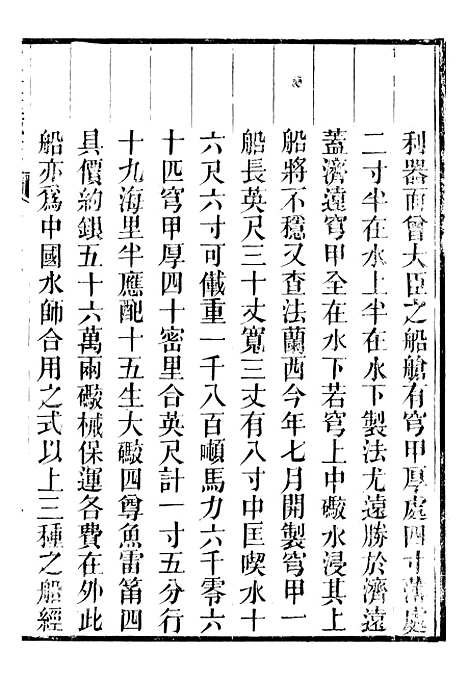 利器而曾大臣之船艙有穹甲厚處四寸薄處
二寸半在水上半在水下製法尤遠勝於濟遠
蓋濟遠穹甲全在水下若穹上中礮水浸其上
船將不穩又查法蘭西今年七月開製穹甲一
船長英尺三十丈寬三丈有八寸中匡喫水十
六尺六寸可儎重一千八百噸馬力六千零六
十匹穹甲厚四十密里合英尺計一寸五分行
十九海里半應配十五生大礮四尊魚雷筩四
具價約鎖五十六萬兩礮械保運各費在外此
船亦為中國水師合用之式以上三種之船經